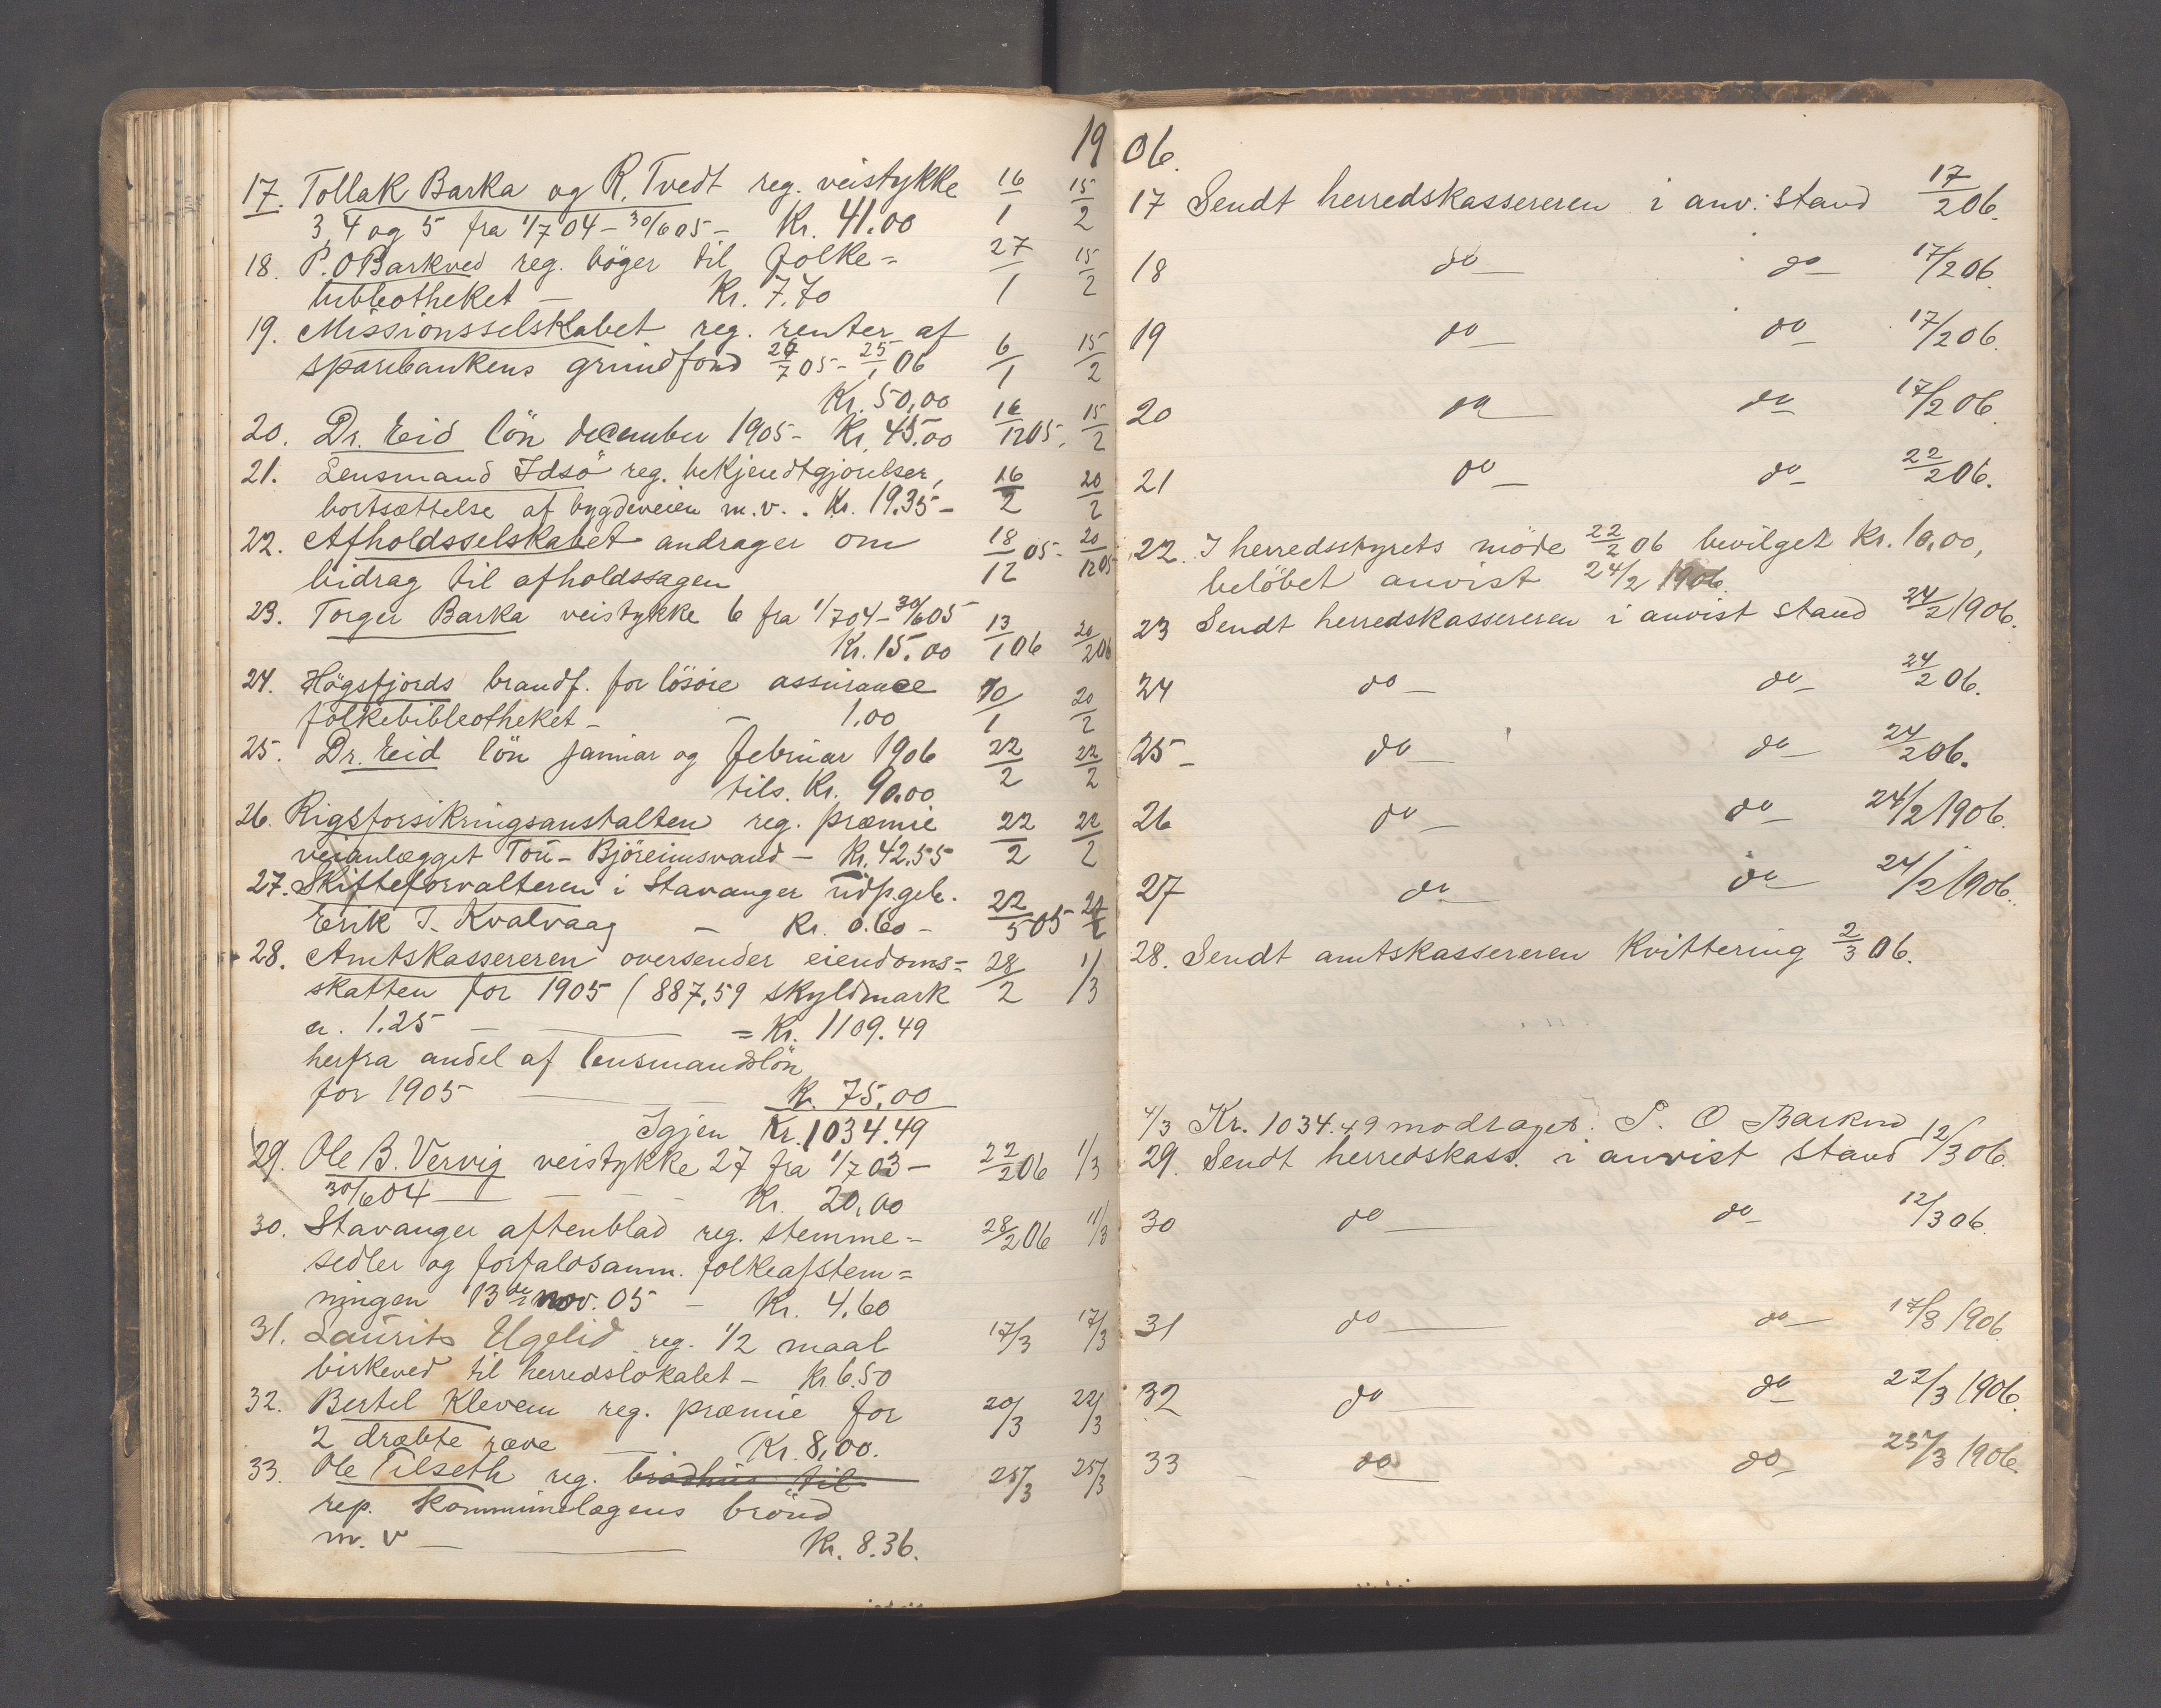 1906.
17. Tollak Barka og R. Tvedt reg. veistykke 16/1 15/2
3, 4 og 5 fra 1/7 04 - 30/6 05 - Kr. 41.00
18. P. O Barkved reg. böger til folke= 27/1 15/2
bibliotheket - Kr. 7.70
19. Missionsselskabet reg. renter af
sparebankens grundfond 26/7 05 - 25/1 06 6/1 15/2
Kr. 50,00
20. Dr. Eid lön december 1905 - Kr. 45.00 16/12 05. 15/2
21. Lensmand Idsö reg. bekjendtgjörelser, 16/2 20/2
bortsættelse af bygdeveien m.v. . Kr. 19.35 -
22. Afholdsselskabet andrager om 18/12 05 - 20/12 05
bidrag til afholdssagen
23. Torger Barka veistykke 6 fra 1/7 04 - 30/6 05
Kr. 15.00 13/1 06 20/2 06
24. Högsfjords brandf. for lösöre assurance 10/1 20/2
folkebibliotheket - - 1.00
25. Dr. Eid lön januar og februar 1906 22/2 22/2
tils. Kr. 90.00
26. Rigsforsikringsanstalten reg. præmie 22/2 22/2
veianlægget Tou - Björeimsvand - Kr. 42.55
27. Skifteforvalteren i Stavanger udp.geb.
Erik T. Kvalvaag - Kr. 0.60 - 22/5 05 22/2
28. Amtskassereren oversender eiendoms= 28/2 1/3
skatten for 1905 (887,59 skyldmark
a. 1.25 - = Kr. 1109.49
herfra andel af lensmandslön
for 1905 - Kr. 75,00
Igjen Kr. 1034.49
29. Ole B. Vervig veistykke 27 fra 1/7 03 - 22/2 06 1/3
30/6 04 - Kr. 20,00
30. Stavanger aftenblad reg. stemme= 28/2 06 11/3
sedler og forfaldsanm. folkeafstem=
ningen 13de nov. 05 - Kr. 4.60
31. Laurits Ugelid reg. 1/2 maal 17/3 17/3
birkeved til herredslokalet - Kr 6.50
32. Bertel Kleven reg. præmie for 20/3 22/3
2 dræbte ræve - Kr. 8,00.
33. Ole Tilseth reg. brödhus til 25/3 25/3
rep. kommunelagens brönd
m. v - Kr. 8.36.
17 Sendt herredskassereren i anv. stand 17/2 06.
18 do - do - 17/2 06.
19 do - do - 17/2 06.
20 do - do - 17/2 06.
21 do - do - 22/2 06.
22. I herredsstyrets möde 22/2 06 bevilget kr. 10,00,
belöbet anvist 24/2 1906.
23 Sendt herredskassereren i anvist stand 24/2 1906.
24 do - do - 24/2 06.
25 - do - do - 24/2 06.
26 do - do - 24/2 1906.
27 do - do - 24/2 1906.
28. Sendt amtskassereren kvittering 2/3 06.
4/3 Kr. 1034.49 modtaget. P. O Barkved
29. Sendt herredskass. i anvist stand 12/3 06.
30 do - do - 12/3 06.
31 do - do - 17/3 1906.
32 do - do - 22/3 1906.
33 do - do - 25/3 1906.